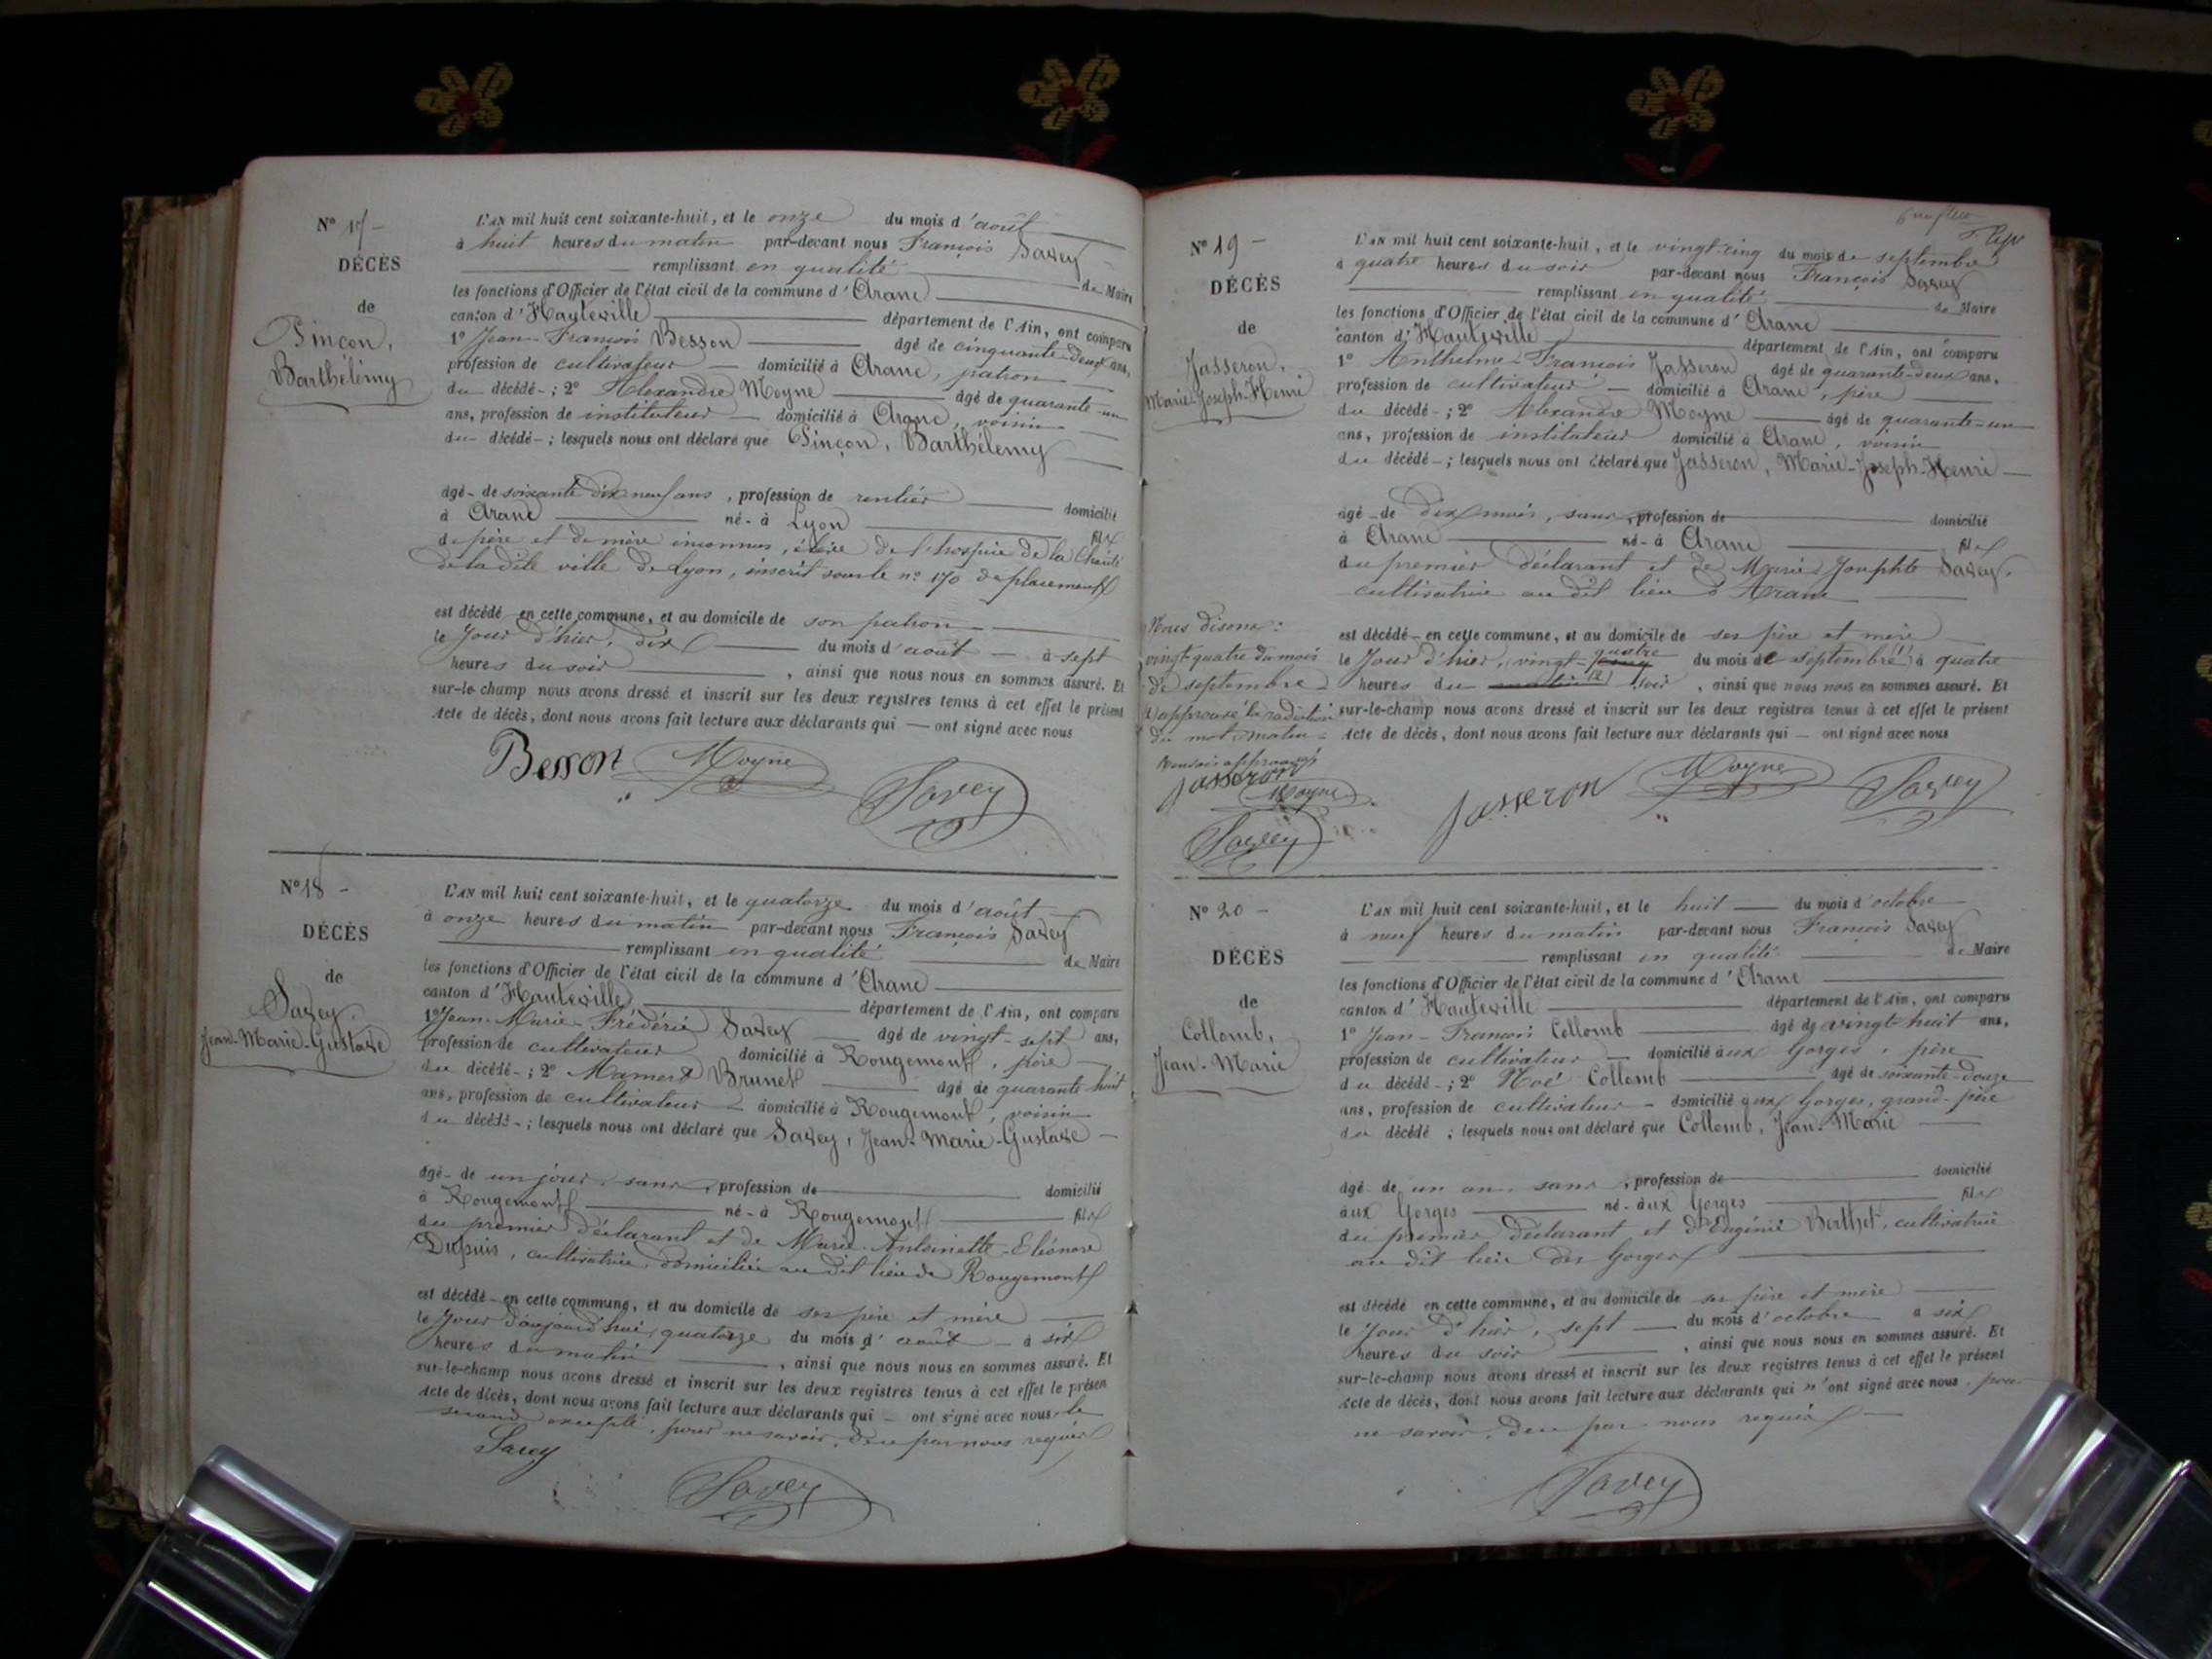 N° 17 -
DÉCÈS
de
Pinçon,
Barthélémy
L'AN mil huit cent soixante-huit, et le onze du mois d'août
à huit heures du matin par-devant nous François Savey
remplissant en qualité de Maire
les fonctions d'Officier de l'état civil de la commune d'Aranc
canton d'Hauteville département de l'Ain, ont comparu
1° Jean-François Besson âgé de cinquante-deux ans,
profession de cultivateur domicilié à Aranc, patron
du décédé ; 2° Alexandre Moyne âgé de quarante-un
ans, profession de instituteur domicilié à Aranc, voisin
du décédé ; lesquels nous ont déclaré que Pinçon, Barthélemy
âgé de soixante dix neuf ans, profession de rentier domicilié
à Aranc né à Lyon fils
de père et de mère inconnus, élève de l'hospice de la Charité
de la dite ville de Lyon, inscrit sous le n° 170 de placement
est décédé en cette commune, et au domicile de son patron
le jour d'hier, dix du mois d'août à sept
heures du soir, ainsi que nous nous en sommes assuré. Et
sur-le-champ nous avons dressé et inscrit sur les deux registres tenus à cet effet le présent
Acte de décès, dont nous avons fait lecture aux déclarants qui ont signé avec nous
Besson Moyne Savey
N° 18 -
DÉCÈS
de
Savey,
Jean-Marie-Gustave
L'AN mil huit cent soixante-huit, et le quatorze du mois d'août
à onze heures du matin par-devant nous François Savey
remplissant en qualité de Maire
les fonctions d'Officier de l'état civil de la commune d'Aranc
canton d'Hauteville département de l'Ain, ont comparu
1° Jean-Marie-Frédéric Savey âgé de vingt-sept ans,
profession de cultivateur domicilié à Rougemont, père
du décédé ; 2° Mamert Brunet âgé de quarante huit
ans, profession de cultivateur domicilié à Rougemont, voisin
du décédé ; lesquels nous ont déclaré que Savey, Jean-Marie-Gustave
âgé de un jour, sans profession de domicilié
à Rougemont né à Rougemont fils
du premier déclarant et de Marie-Antoinette-Eléonore
Dupuis, cultivatrice, domiciliée au dit lieu de Rougemont
est décédé en cette commune, et au domicile de ses père et mère
le jour d'aujourd'hui, quatorze du mois d'août à six
heures du matin, ainsi que nous nous en sommes assuré. Et
sur-le-champ nous avons dressé et inscrit sur les deux registres tenus à cet effet le présen
Acte de décès, dont nous avons fait lecture aux déclarants qui ont signé avec nous le
second excepté, pour ne savoir, de ce par nous requis
Savey Savey
N° 19 -
DÉCÈS
de
Jasseron,
Marie-Joseph-Henri
L'AN mil huit cent soixante-huit, et le vingt-cinq du mois de septembre
à quatre heures du soir par-devant nous François Savey
remplissant en qualité de Maire
les fonctions d'Officier de l'état civil de la commune d'Aranc
canton d'Hauteville département de l'Ain, ont comparu
1° Anthelme-François Jasseron âgé de quarante-deux ans,
profession de cultivateur domicilié à Aranc, père
du décédé ; 2° Alexandre Moyne âgé de quarante-un
ans, profession de instituteur domicilié à Aranc, voisin
du décédé ; lesquels nous ont déclaré que Jasseron, Marie-Joseph-Henri
âgé de dix mois, sans profession de domicilié
à Aranc né à Aranc fils
du premier déclarant et de Marie Josephte Savey,
cultivatrice au dit lieu d'Aranc
est décédé en cette commune, et au domicile de ses père et mère
le jour d'hier, vingt-quatre du mois de septembre (1) à quatre
heures du matin (2) soir, ainsi que nous nous en sommes assuré. Et
sur-le-champ nous avons dressé et inscrit sur les deux registres tenus à cet effet le présent
Acte de décès, dont nous avons fait lecture aux déclarants qui ont signé avec nous
Nous disons :
vingt-quatre du mois
de septembre
(2) approuvé la radiation
du mot matin
approuvés
Jasseron
Moyne
Savey
Jasseron Moyne Savey
N° 20 -
DÉCÈS
de
Collomb,
Jean-Marie
L'AN mil huit cent soixante-huit, et le huit du mois d'octobre
à neuf heures du matin par-devant nous François Savey
remplissant en qualité de Maire
les fonctions d'Officier de l'état civil de la commune d'Aranc
canton d'Hauteville département de l'Ain, ont comparu
1° Jean-François Collomb âgé de vingt-huit ans,
profession de cultivateur domicilié aux Gorges, père
du décédé ; 2° Noé Collomb âgé de soixante-douze
ans, profession de cultivateur domicilié aux Gorges, grand-père
du décédé ; lesquels nous ont déclaré que Collomb, Jean-Marie
âgé de un an, sans profession de domicilié
aux Gorges né aux Gorges fils
du premier déclarant et d'Eugénie Berthet, cultivatrice
au dit lieu des Gorges
est décédé en cette commune, et au domicile de ses père et mère
le jour d'hier, sept du mois d'octobre à six
heures du soir, ainsi que nous nous en sommes assuré. Et
sur-le-champ nous avons dressé et inscrit sur les deux registres tenus à cet effet le présent
Acte de décès, dont nous avons fait lecture aux déclarants qui n'ont signé avec nous, pour
ne savoir, de ce par nous requis
Savey